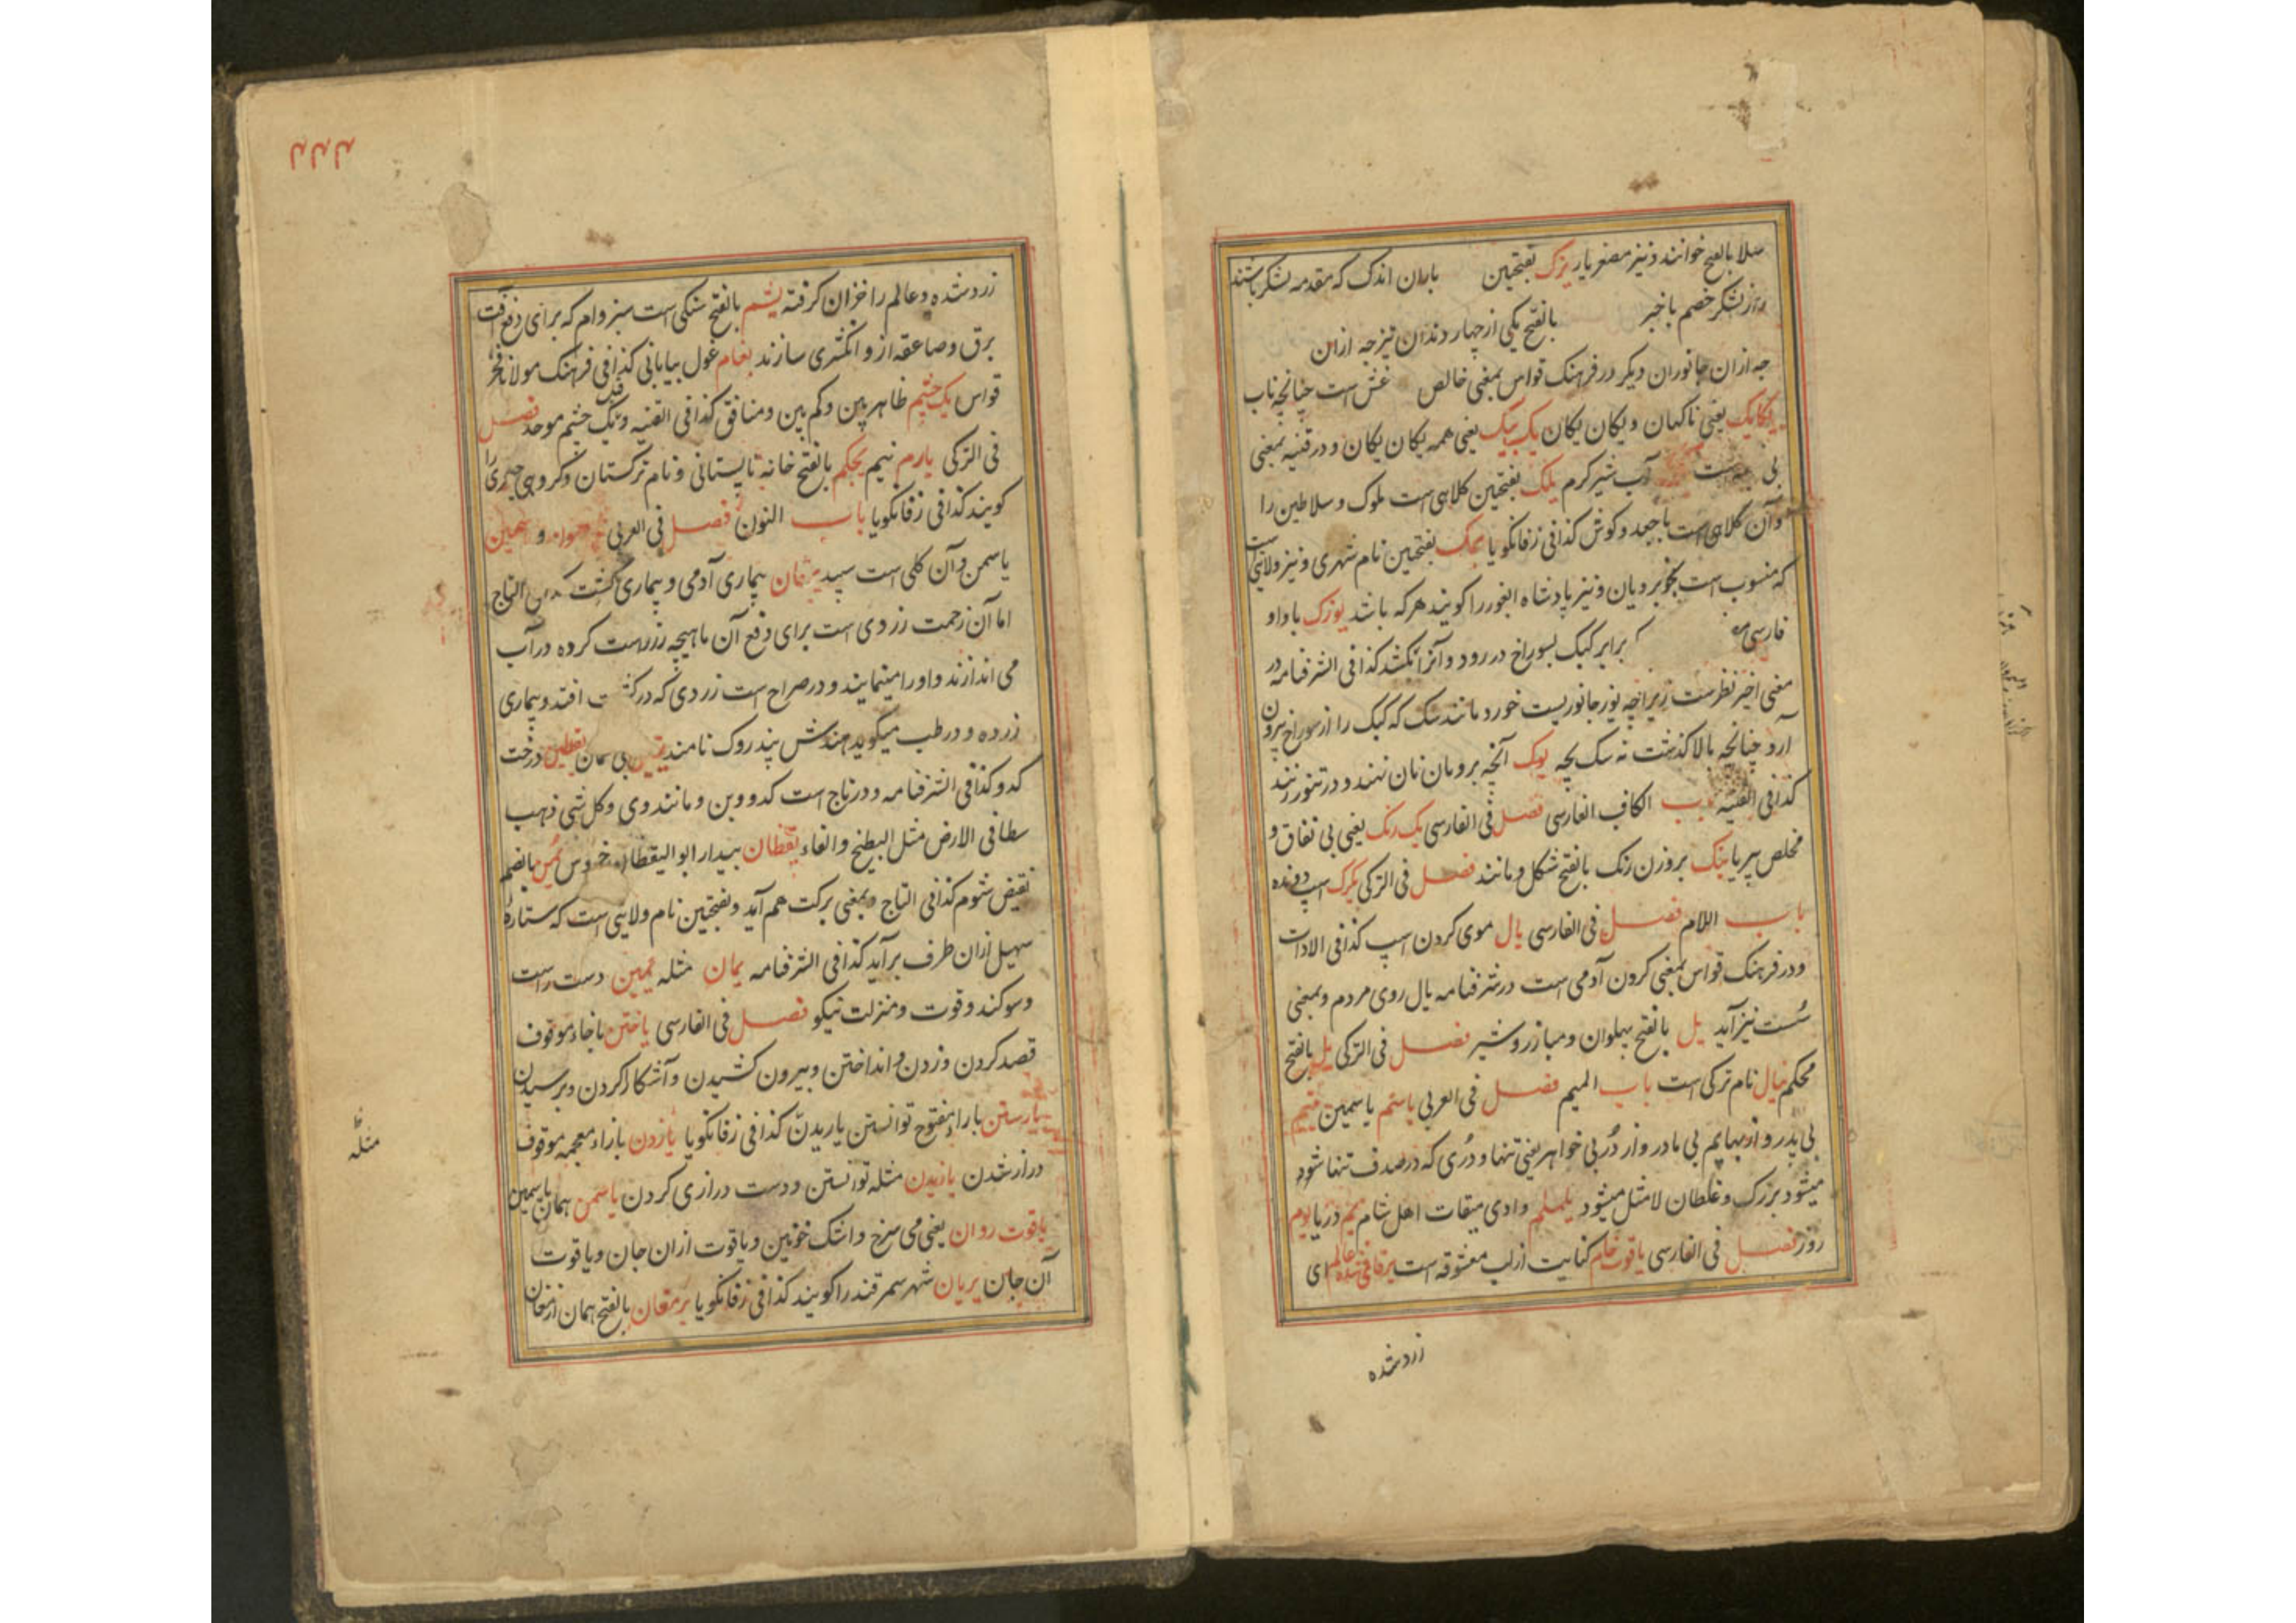 سلا بالفتح خوانند و نیز مصغر یار یزک بفتحتین باران اندک که مقدمه لشکر باشند
از لشکر خصم باخبر بالفتح یکی از چهار دندان نیز چه ازان
چه ازان جانوران دیگر در فرهنک قواس بمعنی خالص غش است چنانچه ناب
یکایک یعنی ناکهان و یکان یکان یک بیک یعنی همه یکان یکان و در قنیه بمعنی
بی است آب شیر کرم یلک بفتحتین کلاهی است ملوک و سلاطین را
و آن کلاهی است با جعد و کوش کذا فی زفانکویا یمک بفتحتین نام شهری و نیز ولایتی است
که منسوب است بخوبرویان و نیز پادشاه الغور را کویند هرکه باشد یوزک با واو
فارسی برابر کبک بسوراخ در رود و آنرا بکشد کذا فی الشرفنامه در
معنی اخیر نظرست زیراچه یوز جانوریست خورد مانند سک که کبک را از سوراخ بیرون
آرد چنانچه بالا کذشت نه سک بچه یوک آنچه بروبان نان نهند و در تنور زنند
کذا فی القنیه باب الکاف الفارسی فصل فی الفارسی یک رنک یعنی بی نفاق و
مخلص بیریا ینک بروزن رنک بالفتح شکل و مانند فصل فی الترکی یکرک اسپ دونده
باب اللام فصل فی الفارسی یال موی کردن اسپ کذا فی الادات
و در فرهنک قواس بمعنی کردن آدمی است در شرفنامه یال روی مردم و بمعنی
سست نیز آید یل بالفتح پهلوان و مبارز و شیر فصل فی الترکی یل بالفتح
محکم ینال نام ترکی است باب المیم فصل فی العربی یاسم یاسمین یتیم
بی پدر و از بهایم بی مادر و از دُر بی خواهر یعنی تنها و دُری که در صدف تنها شود
میشود بزرک و غلطان لامثل میشود یلملم وادی میقات اهل شام یم دریا یوم
روز فصل فی الفارسی یاقوت خام کنایت از لب معشوقه است یرقانی شده عالم ای
زرد شده
زرد شده و عالم را خزان کرفته یشم بالفتح سنکی است سبز وام که برای دفع آفت
برق و صاعقه ازو انکشتری سازند یغام غول بیابانی کذا فی فرهنک مولانا فخر
قواس یک چشم ظاهربین و کم بین و منافق کذا فی القنیه و یک چشم موحد فصل
فی الترکی یارم نیم یجکم بالفتح خانه تابستانی و نام ترکستان و کروهی چیزی را
کویند کذا فی زفانکویا باب النون فصل فی العربی و یاسمین
یاسمن و آن کلی است سپید یرقان بیماری آدمی و بیماری کشت التاج
اما آن زحمت زردی است برای دفع آن ماهیچه زر راست کرده در آب
می اندازند و او را مینمایند و در صراح است زردی که در افتد و بیماری
زرده و در طب میکوید هندش پندروک نامند یقین بی کمان یقطین درخت
کدو کذا فی الشرفنامه و در تاج است کدو وبن و مانند وی و کل شی ذهب
سطا فی الارض مثل البطیخ و القاء یقظان بیدار ابوالیقظان خروس یمن بالضم
نقیض شوم کذا فی التاج و بمعنی برکت هم آید و بفتحتین نام ولایتی است که ستاره
سهیل ازان طرف برآید کذا فی الشرفنامه یمان مثله یمین دست راست
و سوکند و قوت و منزلت نیکو فصل فی الفارسی یاختن با خاء موقوف
قصد کردن و زدن و انداختن و بیرون کشیدن و آشکارا کردن و برسیدن
یارستن با راء مفتوح توانستن یاریدن کذا فی زفانکویا یازدن با زاء معجمه موقوف
دراز شدن یازیدن مثله توانستن و دست درازی کردن یاسمن همان یاسمین
یاقوت روان یعنی می سرخ و اشک خونین و یاقوت ازان جان و یاقوت
آن جان یریان شهر سمرقند را کویند کذا فی زفانکویا یرمغان بالفتح همان ارمغان
مثله